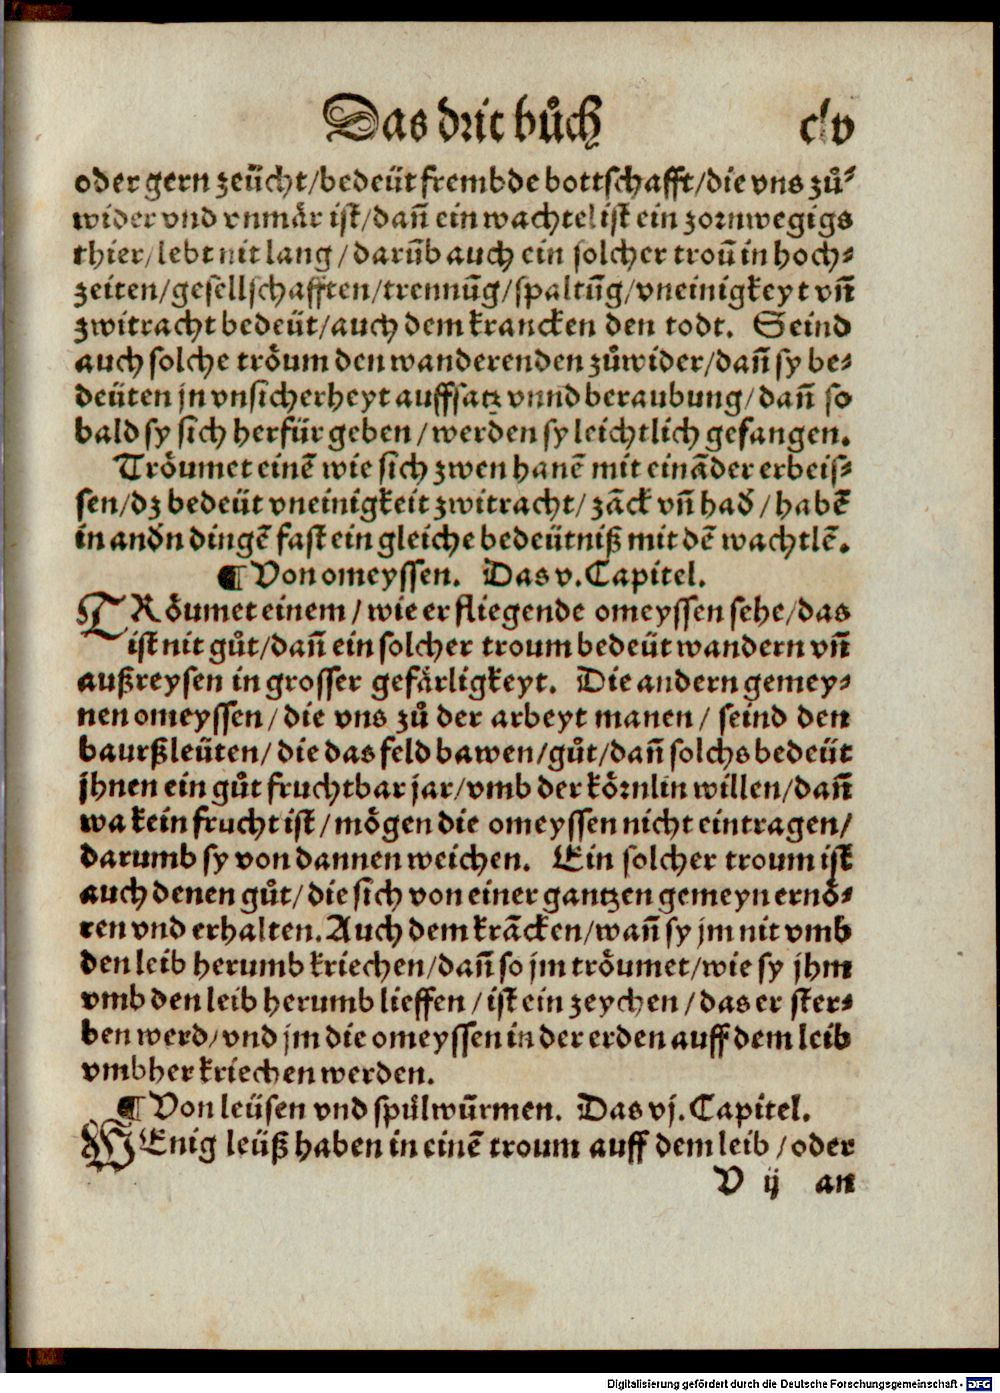 Das drit bůch clv
oder gern zeücht/bedeüt frembde bottschafft/die vns zů⸗
wider vnd vnmär ist/dañ ein wachtel ist ein zornwegigs
thier/lebt nit lang/darüb auch ein solcher troũ in hoch⸗
zeiten/gesellschafften/trennũg/spaltũg/vneinigkeyt vñ
zwitracht bedeüt/auch dem krancken den todt. Seind
auch solche tröum den wanderenden zůwider/dañ sy be⸗
deüten jn vnsicherheyt auffsatz vnnd beraubung/dañ so
bald sy sich herfür geben/werden sy leichtlich gefangen.
Tröumet einẽ wie sich zwen hanẽ mit einãder erbeis⸗
sen/dz bedeüt vneinigkeit zwitracht/zãck vñ had/habẽ
in andn dingẽ fast ein gleiche bedeütniß mit dẽ wachtlẽ.
¶ Von omeyssen. Das v. Capitel.
TRöumet einem/wie er fliegende omeyssen sehe/das
ist nit gůt/dañ ein solcher troum bedeüt wandern vñ
außreysen in grosser gefärligkeyt. Die andern gemey⸗
nen omeyssen/die vns zů der arbeyt manen/seind den
baurßleüten/die das feld bawen/gůt/dañ solchs bedeüt
jhnen ein gůt fruchtbar jar/vmb der körnlin willen/dañ
wa kein frucht ist/mögen die omeyssen nicht eintragen/
darumb sy von dannen weichen. Ein solcher troum ist
auch denen gůt/die sich von einer gantzen gemeyn ernö⸗
ren vnd erhalten. Auch dem krãcken/wañ sy jm nit vmb
den leib herumb kriechen/dañ so jm tröumet/wie sy jhm
vmb den leib herumb lieffen/ist ein zeychen/das er ster⸗
ben werd/vnd jm die omeyssen in der erden auff dem leib
vmbher kriechen werden.
¶ Von leüsen vnd spůlwürmen. Das vj. Capitel.
WEnig leüß haben in einẽ troum auff dem leib/oder
V ij an
Digitalisierung gefördert durch die Deutsche Forschungsgemeinschaft - DFG